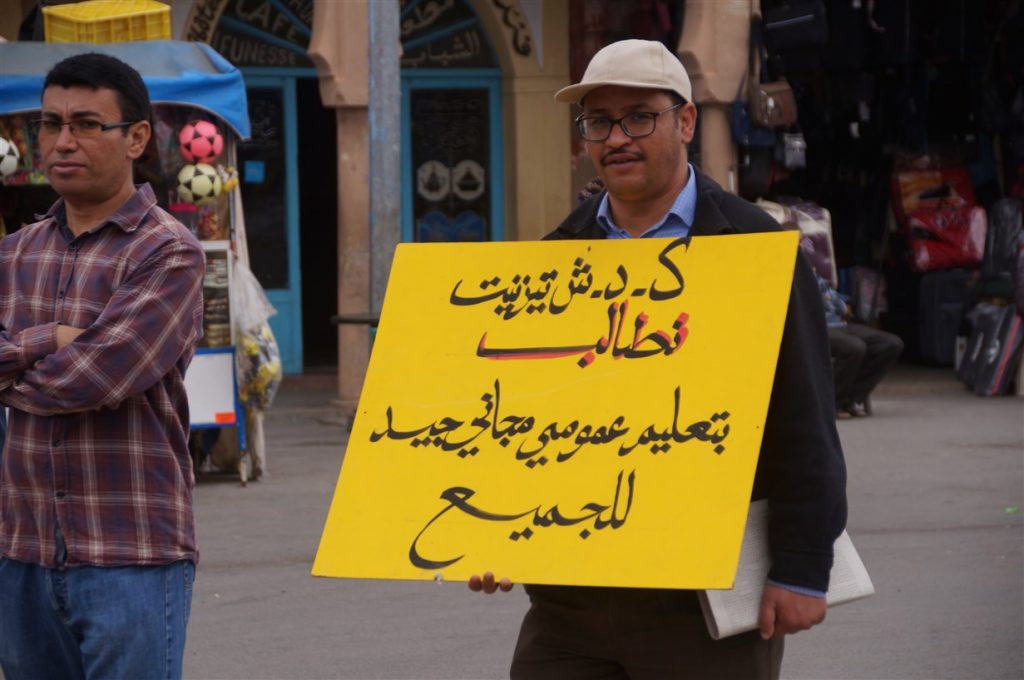 CAFÉ
JEUNESSE
مقهى
الشباب
فندق
ك.د.ش تيزنيت
تطالب
بتعليم عمومي مجاني جيد
للجميع